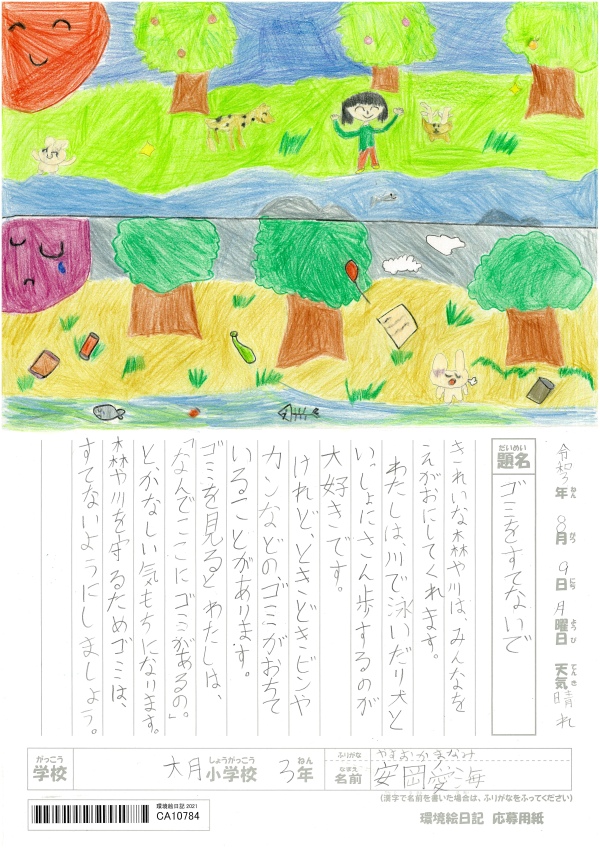 令和3年 8月 9日 月曜日 天気 晴れ
ねん がつ にち ようび てんき
だいめい
題名 ゴミをすてないで
きれいな森や川は、みんなを
えがおにしてくれます。
わたしは、川で泳いだり犬と
いっしょにさん歩するのが
大好きです。
けれど、ときどきビンや
カンなどの、ゴミがおちて
いることがあります。
ゴミを見ると、わたしは、
「なんでここにゴミがあるの。」
とかなしい気もちになります。
森や川を守るためゴミは、
すてないようにしましょう。
がっこう しょうがっこう ねん
学校 大月小学校 3年
ふりがな やすおかまなみ
なまえ
名前 安岡愛海
(漢字で名前を書いた場合は、ふりがなをふってください)
環境絵日記 2021
CA10784
環境絵日記 応募用紙